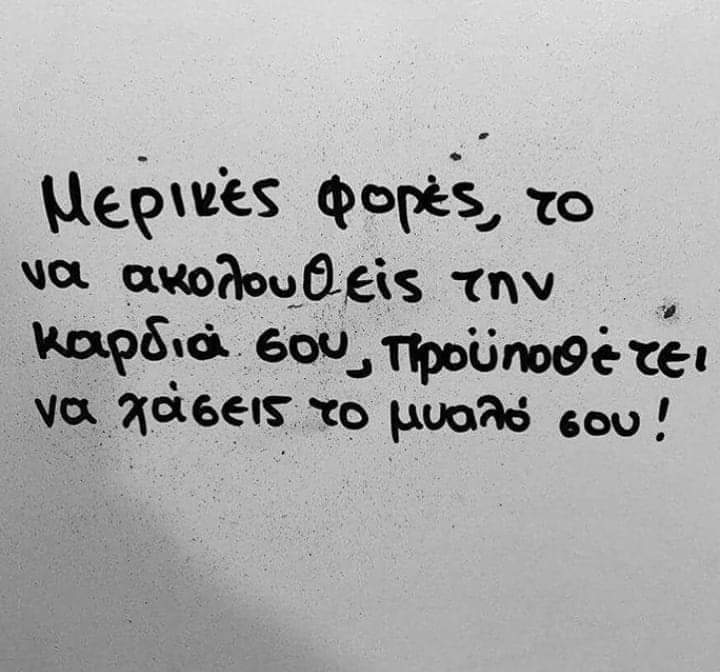 Μερικές φορές, το
να ακολουθείς την
καρδιά σου, προϋποθέτει
να χάσεις το μυαλό σου!